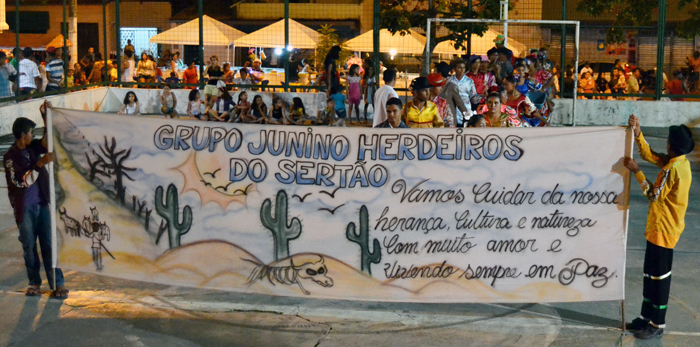 GRUPO JUNINO HERDEIROS
DO SERTÃO
Vamos Cuidar da nossa
herança, Cultura e natureza
Com muito amor e
Vivendo sempre em Paz.